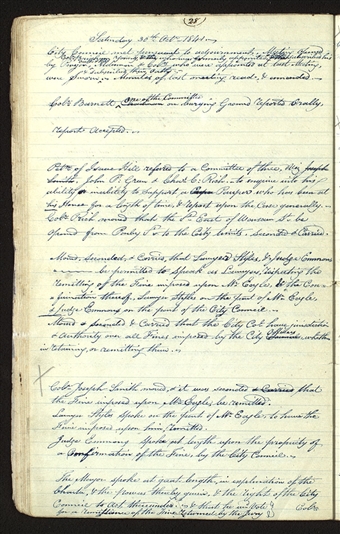 (25
Saturday 30th Octr 1841—
City Council met pursuant to adjournment, Meeting opened
by Prayer,
were sworn.— Minutes of last meeting read, & amended.—
one of the Committee
Coer Barnett, on Burying Ground Reports Orally,
report Accepted.—
Petn of Isaac Hill refered to a Committee of three, Viz Joseph
Smith, John P. Green & Chas C. Rich, to enquire into his
ability or inability to Support a Pauper who has been at
his House for a length of time, & report upon the Case generally.—
Coer Rich moved that the Pt East of Wm St be
opened from Parley St to the City limits, seconded & Carried.
Moved, Seconded, & Carrid, that Lawyer Styles, & Judge Emmons
be permitted to Speak as Lawyers, respecting the
remitting of the Fine imposed upon Mr Eagle, & the Con-
firmation thereof, Lawyer Styles on the part of Mr Eagle,
& Judge Emmons on the part of the City Council.—
Moved & seconded & Carried that the City Col have jurisdiction
& Authority over all Fines imposed by the City Officers, whether
in retaining, or remitting them.—
Coer Joseph Smith moved, & it was seconded & Carried that
the Fine imposed upon Mr Eagle, be remitted.
Lawyer Styles spoke on the part of Mr Eagle, to have the
Fine imposed upon him, remitted.
Judge Emmons spoke at length upon the propriety of
a Confirmation of the Fine, by the City Council.—
The Mayor spoke at great length, in explanation of the
Charter, & the powers thereby given, & the right of the City
Council to Act thereunder: & that he wd Vote
for a remittance of the Fine returned by the Jury
Coer